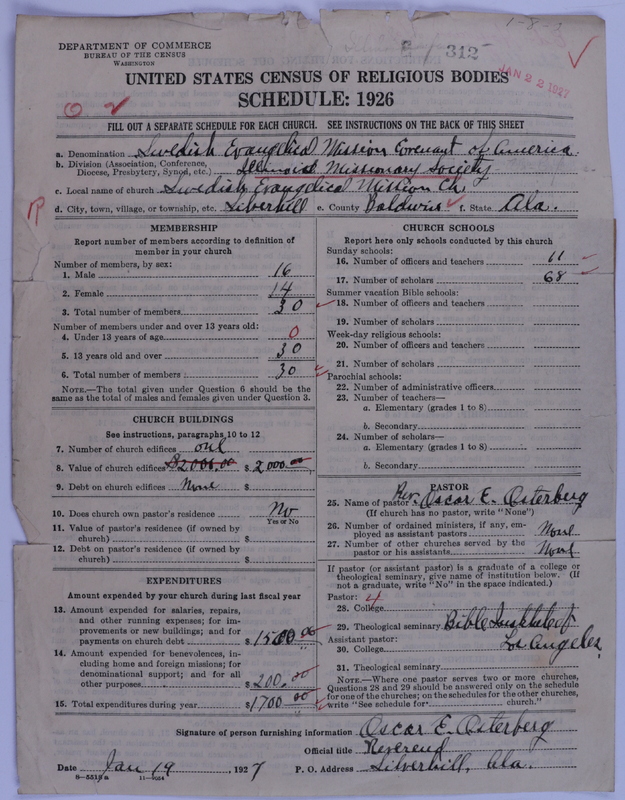 1-8-2
DEPARTMENT OF COMMERCE
BUREAU OF THE CENSUS
WASHINGTON
312
JAN 22 1927
UNITED STATES CENSUS OF RELIGIOUS BODIES
SCHEDULE: 1926
FILL OUT A SEPARATE SCHEDULE FOR EACH CHURCH. SEE INSTRUCTIONS ON THE BACK OF THIS SHEET
a. Denomination Swedish Evangelical Mission Covenant of America
b. Division (Association, Conference, Diocese, Presbytery, Synod, etc.) Illinois Missionary Society
c. Local name of church Swedish Evangelical Mission Ch.
R
d. City, town, village, or township, etc. Silverhill e. County Baldwin f. State Ala.
MEMBERSHIP
Report number of members according to definition of
member in your church
Number of members, by sex:
1. Male 16
2. Female 14
3. Total number of members 30
Number of members under and over 13 years old:
4. Under 13 years of age 0
5. 13 years old and over 30
6. Total number of members 30
NOTE.—The total given under Question 6 should be the
same as the total of males and females given under Question 3.
CHURCH BUILDINGS
See instructions, paragraphs 10 to 12
7. Number of church edifices one
8. Value of church edifices $2000.00 $ 2000.00
9. Debt on church edifices None $
10. Does church own pastor's residence No
Yes or No
11. Value of pastor's residence (if owned by
church) $
12. Debt on pastor's residence (if owned by
church) $
EXPENDITURES
Amount expended by your church during last fiscal year
13. Amount expended for salaries, repairs,
and other running expenses; for im-
provements or new buildings; and for
payments on church debt $ 1500.00
14. Amount expended for benevolences, in-
cluding home and foreign missions; for
denominational support; and for all
other purposes $ 200.00
15. Total expenditures during year $ 1700.00
CHURCH SCHOOLS
Report here only schools conducted by this church
Sunday schools:
16. Number of officers and teachers 11
17. Number of scholars 68
Summer vacation Bible schools:
18. Number of officers and teachers
19. Number of scholars
Week-day religious schools:
20. Number of officers and teachers
21. Number of scholars
Parochial schools:
22. Number of administrative officers
23. Number of teachers—
a. Elementary (grades 1 to 8)
b. Secondary
24. Number of scholars—
a. Elementary (grades 1 to 8)
b. Secondary
PASTOR
25. Name of pastor Rev. Oscar E. Osterberg
(If church has no pastor, write "None")
26. Number of ordained ministers, if any, em-
ployed as assistant pastors None
27. Number of other churches served by the
pastor or his assistants None
If pastor (or assistant pastor) is a graduate of a college or
theological seminary, give name of institution below. (If
not a graduate, write "No" in the space indicated.)
Pastor: 4
28. College
29. Theological seminary Bible Institute of
Assistant pastor: Los Angeles
30. College
31. Theological seminary
NOTE.—Where one pastor serves two or more churches,
Questions 28 and 29 should be answered only on the schedule
for one of the churches; on the schedules for the other churches,
write "See schedule for church."
Signature of person furnishing information Oscar E. Osterberg
Official title Reverend
Date Jan 19, 1927 P. O. Address Silverhill, Ala.
8-5513a 11-9054